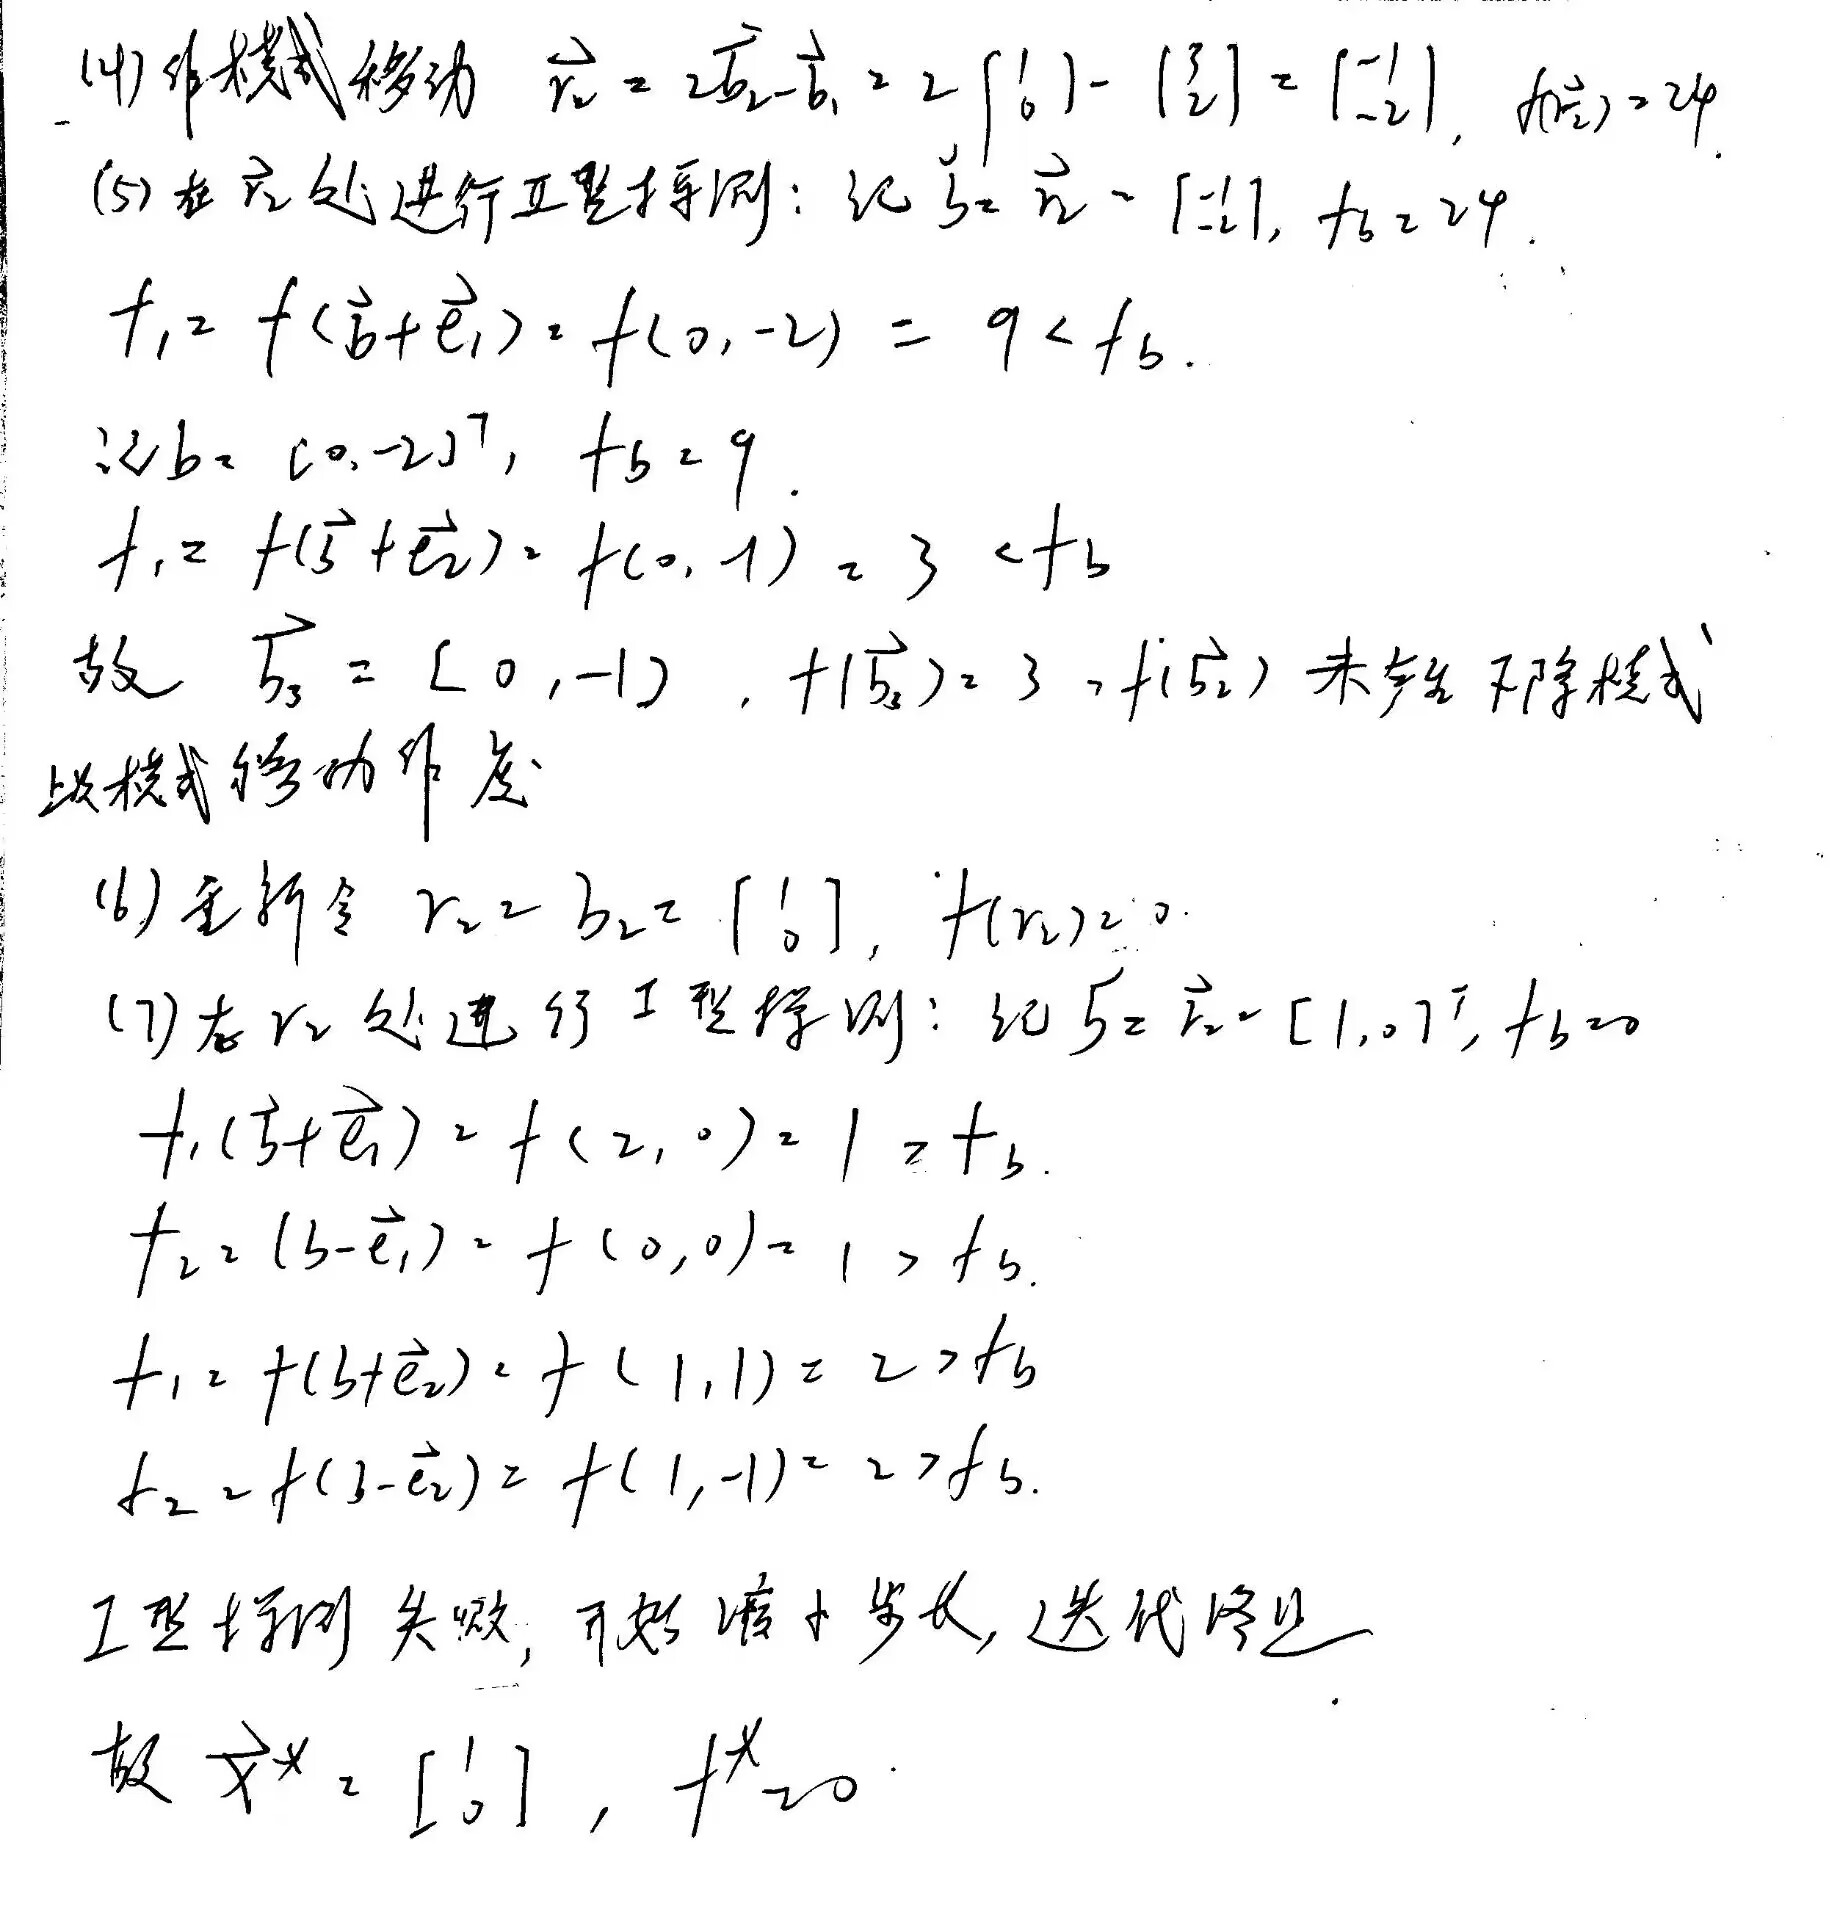 (4) 作模式移动 r⃗₂ = 2b⃗₂-b⃗₁ = 2[1 0] - [3 2] = [-1 -2], f(r⃗₂) = 24.
(5) 在 r⃗₂ 处进行Ⅱ型探测: 记 b⃗ = r⃗₂ = [-1 -2], f_b = 24.
f₁ = f(b⃗+e⃗₁) = f(0,-2) = 9 < f_b.
记 b = [0,-2]ᵀ, f_b = 9.
f₁ = f(b⃗+e⃗₂) = f(0,-1) = 3 < f_b
故 b⃗₃ = [0,-1], f(b⃗₃) = 3 > f(b⃗₂) 未产生下降模式
上次模式移动作废
(6) 重新令 r₂ = b₂ = [1 0], f(r₂) = 0.
(7) 在 r₂ 处进行Ⅰ型探测: 记 b = r⃗₂ = [1,0]ᵀ, f_b = 0
f₁(b⃗+e⃗₁) = f(2,0) = 1 = f_b.
f₂ = (b-e⃗₁) = f(0,0) = 1 > f_b.
f₁ = f(b+e⃗₂) = f(1,1) = 2 > f_b
f₂ = f(b-e⃗₂) = f(1,-1) = 2 > f_b.
Ⅰ型探测失败, 开始缩小步长, 迭代终止
故 x⃗* = [1 0], f* = 0.